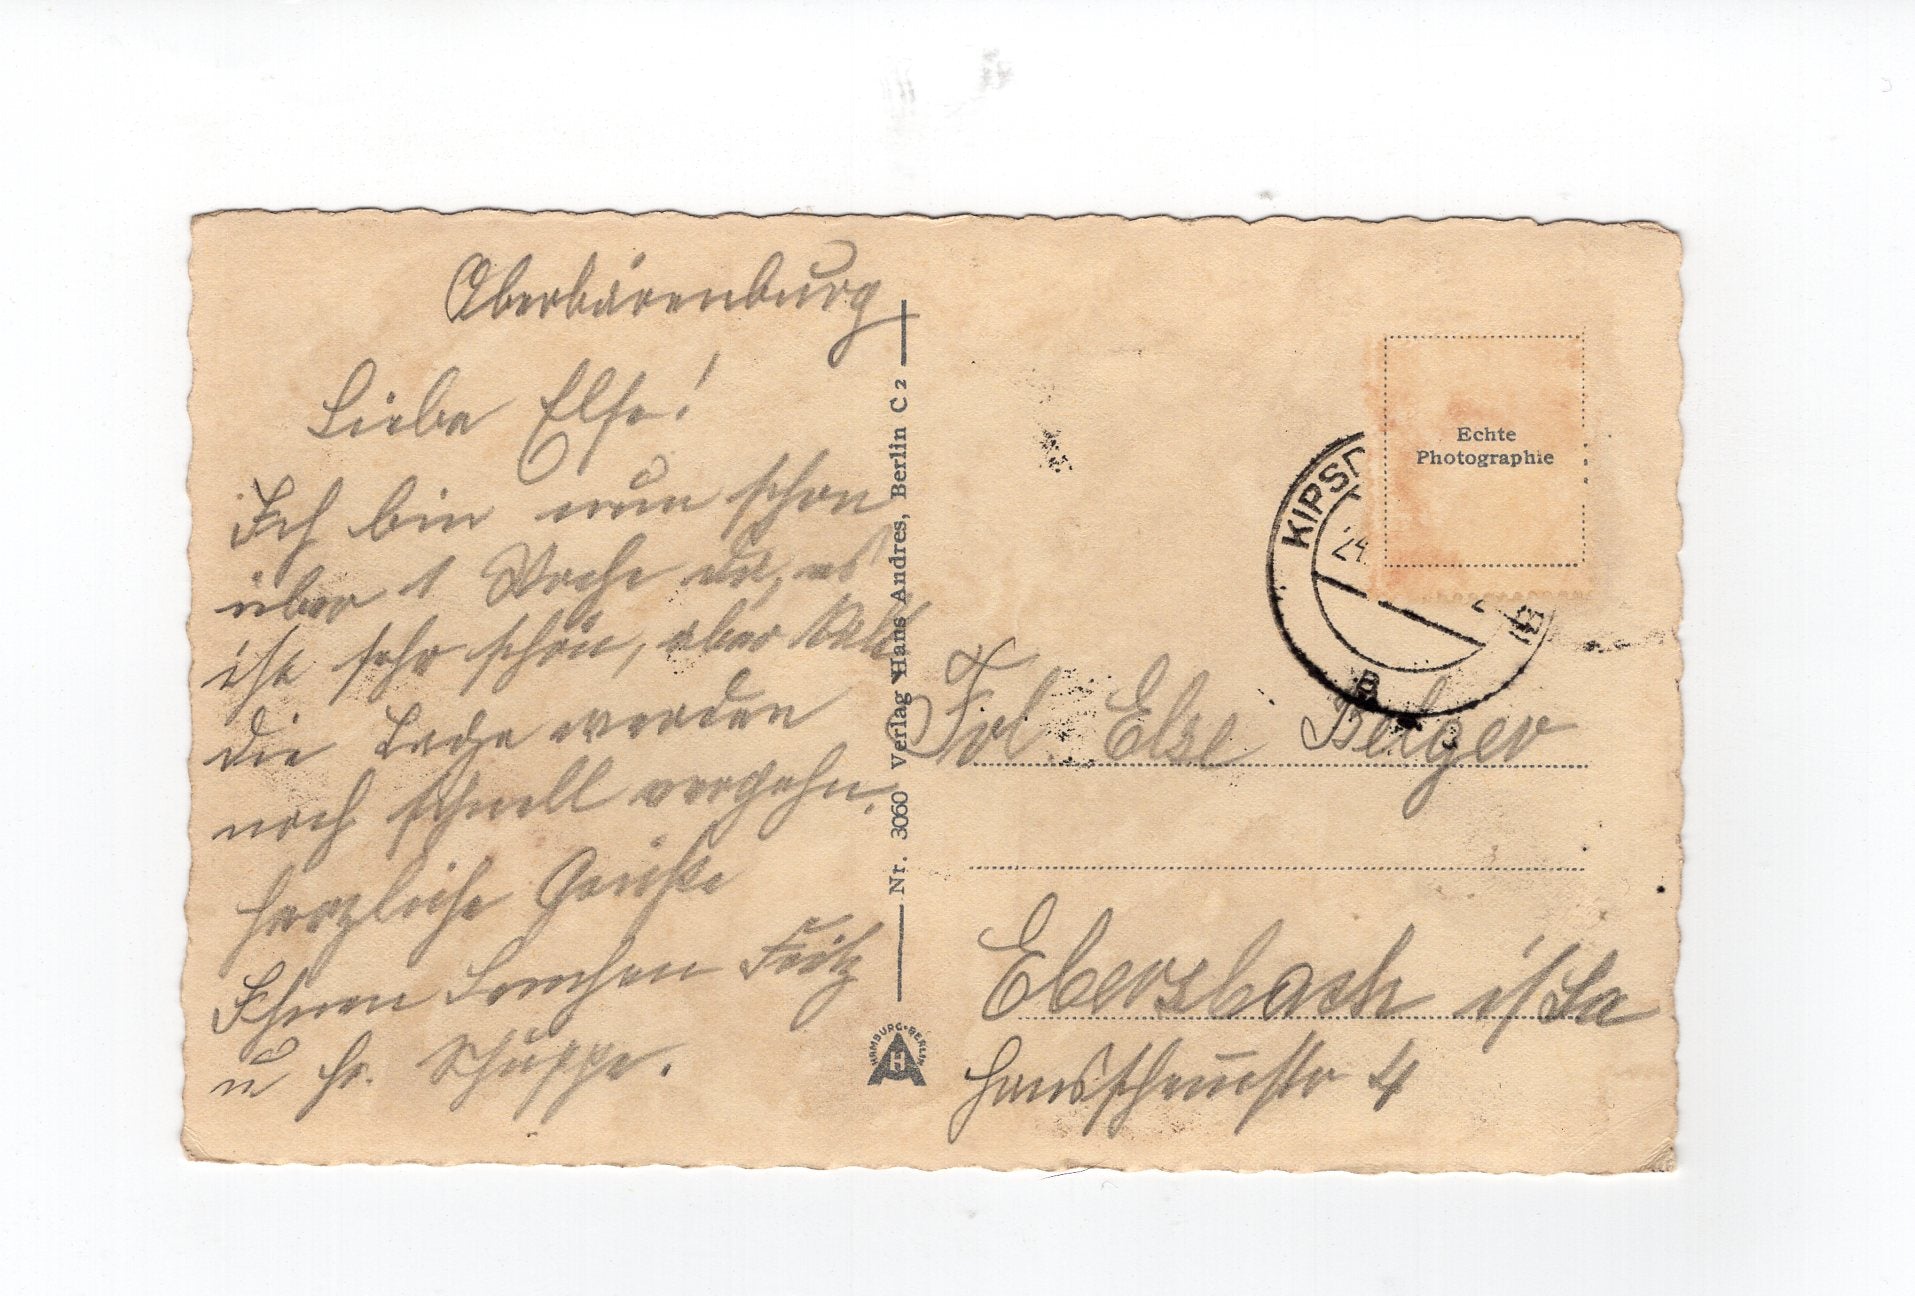 Oberbärenburg
Liebe Else!
Ich bin nun schon
über 1 Woche da, es
ist sehr schön, aber
die Tage werden
noch schnell vergehn.
Herzliche Grüße
Ihnen Lenchen Fritz
u Fr. Schuppe.
Nr. 3060 Verlag Hans Andres, Berlin C 2
HAMBURG•BERLIN
H
Echte
Photographie
KIPSD
24.
B
Frl. Else Belger
Ebersbach i/Sa
4